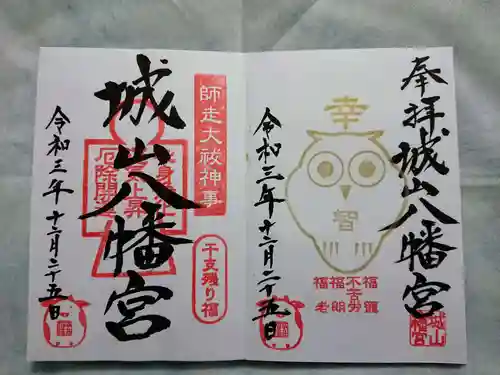 奉拝
城山八幡宮
幸
智
福籠
不苦労
福朗
福老
令和三年十二月二十五日
城山
八幡宮
師走大祓神事
干支残り福
城山八幡宮
厄除開
令和三年十二月二十五日